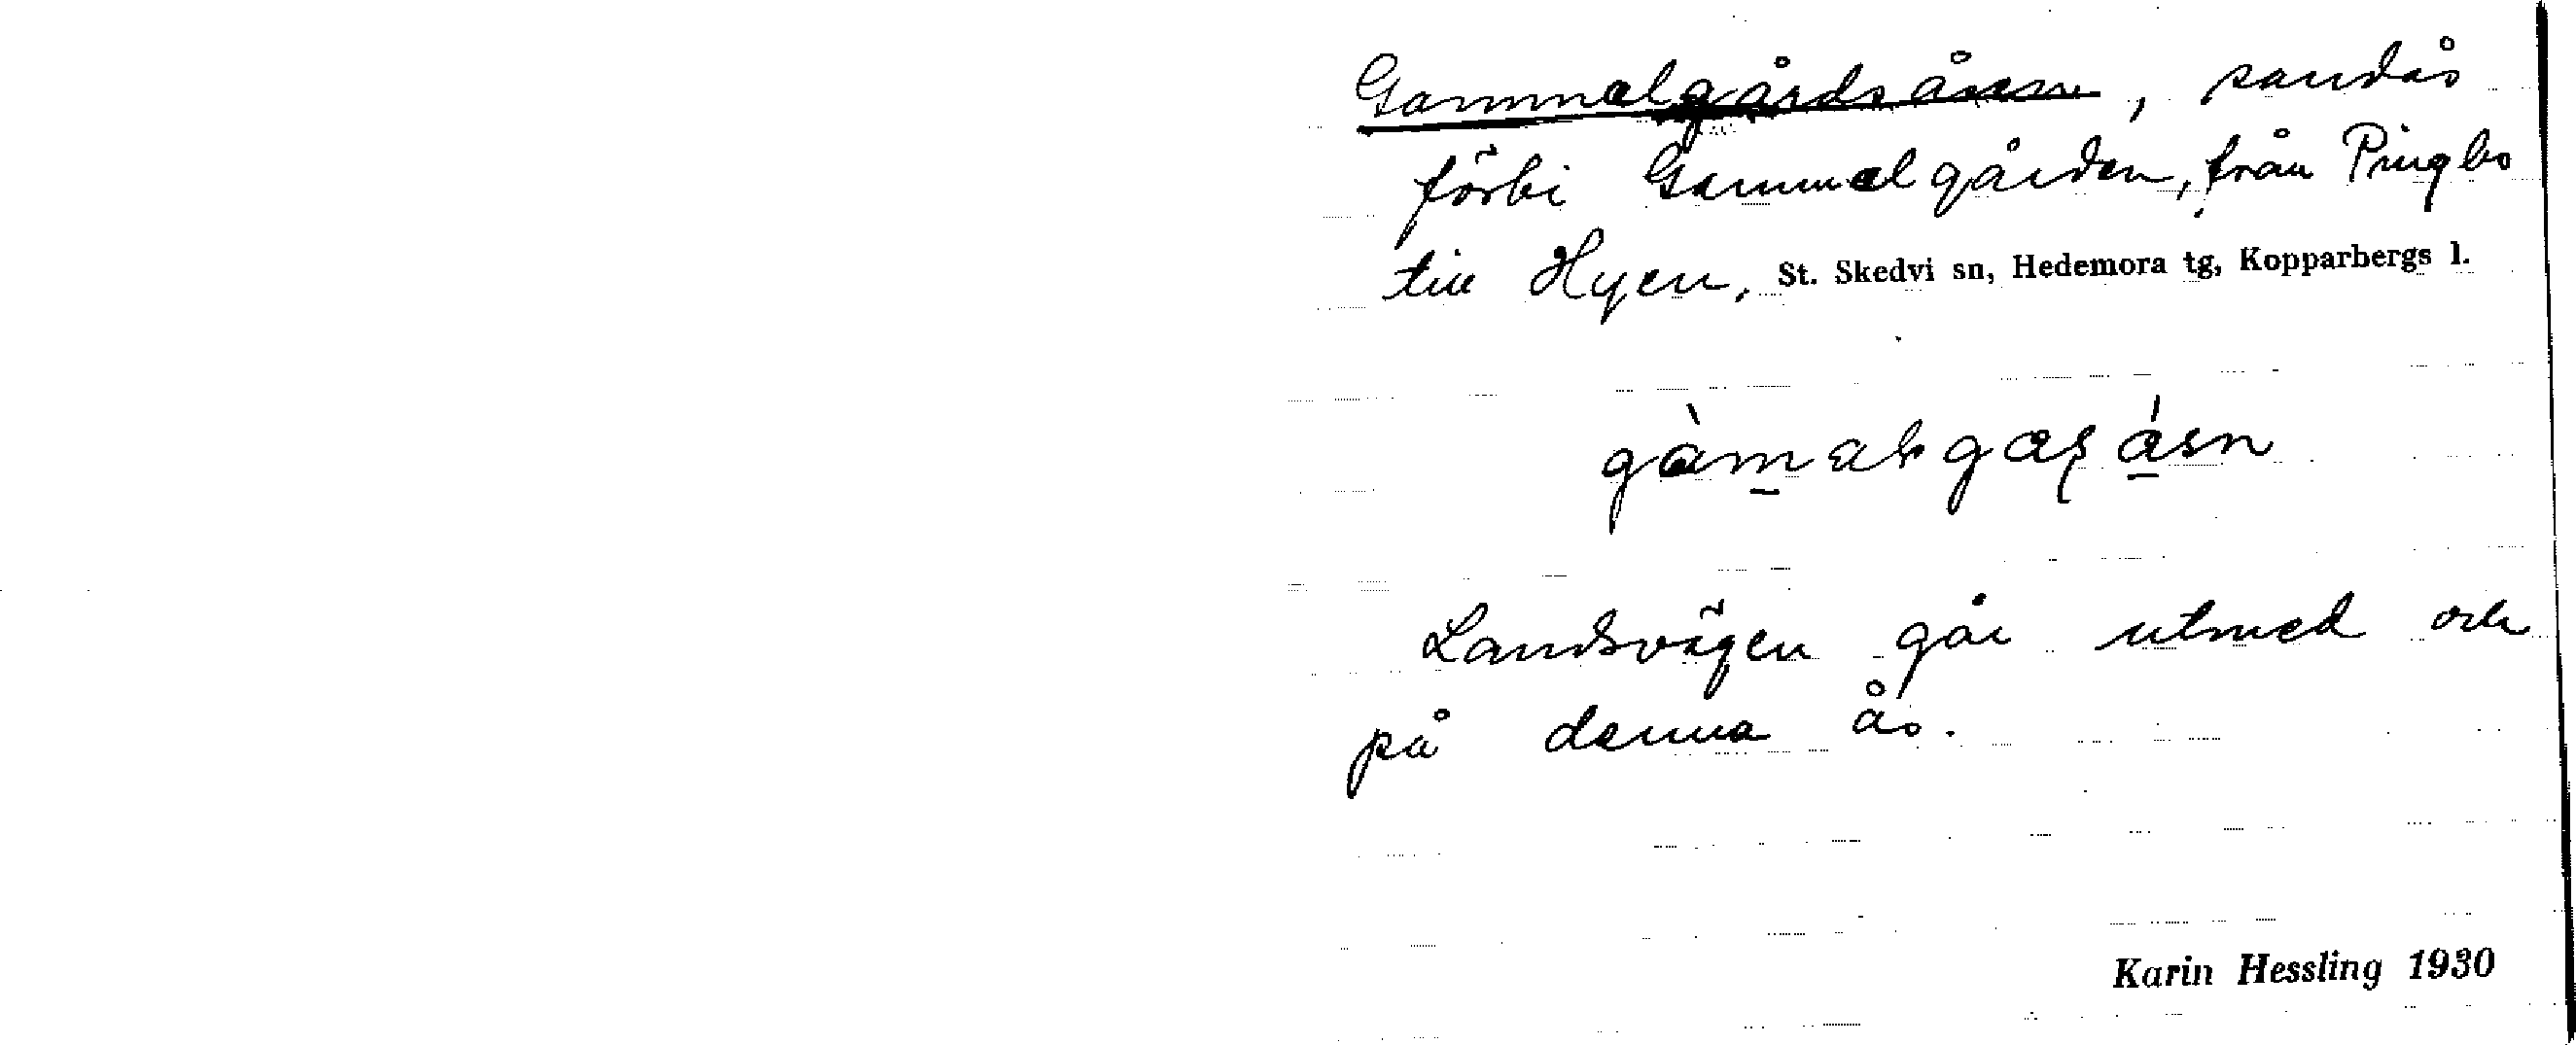 Gammelgårdsåsen, sandås
förbi Gammelgården, från Pingbo
till Hyen, St. Skedvi sn, Hedemora tg, Kopparbergs l.
Landsvägen går utmed och
på denna ås.
Karin Hessling 1930